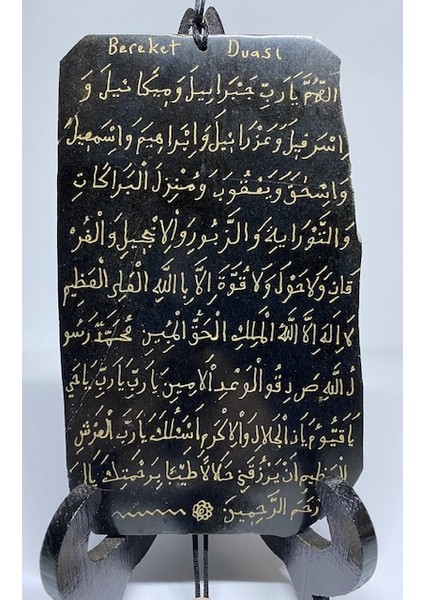 Bereket Duası
اَللّٰهُمَّ يَا رَبِّ جَبْرَايِٕيلَ وَمِيكَائِيلَ وَ
اِسْرَفِيلَ وَعَزْرَائِيلَ وَاِبْرَاهِيمَ وَاسْمَعِيلَ
وَاِسْحٰقَ وَيَعْقُوبَ وَمُنْزِلَ الْبَرَاكَاتِ
وَالتَّوْرَايةِ وَالزَّبُورِ وَالْاِنْجِيلِ وَالْفُرْ
قَانِ وَلَا حَوْلَ وَلَا قُوَّةَ اِلَّا بِا اللّٰهِ الْعَلِىِ الْعَظِيمِ
لَا اِلٰهَ اِلَّا اللّٰهُ الْمَلِكِ الْحَقُّ الْمُبِينِ مُحَمَّدٌ رَسُو
لُ اللّٰهِ صَ دِقُو الْوَعْدِ الْاَمِينِ يَا رَبِّ يَا رَبِّ يَا حَيُ
يَا قَيُّومُ يَا ذَ الْجَلَالِ وَالْاِكْرَمِ اَسْئَلُكَ يَا رَبَّ الْعَرْشِ
الْعَظِيمِ اَنْ يَرْزُقَنِي حَلَالًا طَيِّبًا بِرَحْمَتِكَ يَا اَ
رْحَمَ الرَّحِمِينَ